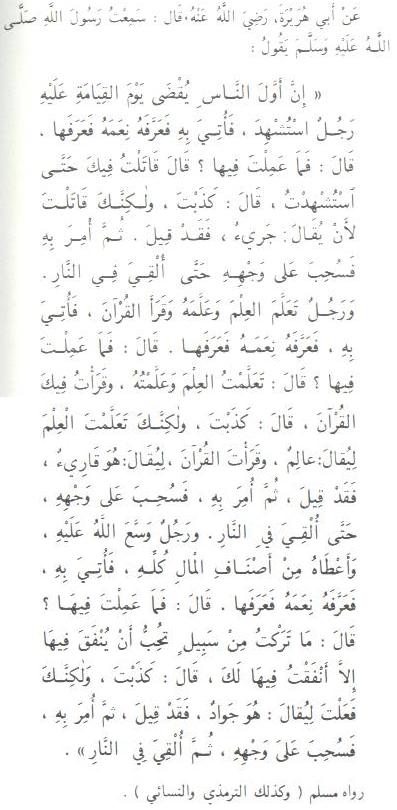 عَنْ أَبِي هُرَيْرَةَ، رَضِيَ اللَّهُ عَنْهُ، قَالَ : سَمِعْتُ رَسُولَ اللَّهِ صَلَّى
اللَّهُ عَلَيْهِ وَسَلَّمَ يَقُولُ :
« إِنَّ أَوَّلَ النَّاسِ يُقْضَى يَوْمَ القِيَامَةِ عَلَيْهِ
رَجُلٌ اسْتُشْهِدَ ، فَأُتِيَ بِهِ فَعَرَّفَهُ نِعَمَهُ فَعَرَفَها ،
قَالَ : فَمَا عَمِلْتَ فِيها ؟ قَالَ قَاتَلْتُ فِيكَ حَتَّى
اسْتُشْهِدْتُ ، قَالَ : كَذَبْتَ ، ولٰكِنَّكَ قَاتَلْتَ
لأَنْ يُقَالَ : جَرِيءٌ ، فَقَدْ قِيلَ . ثُمَّ أُمِرَ بِهِ
فَسُحِبَ عَلى وَجْهِهِ حَتَّى أُلْقِيَ فِي النَّارِ .
وَرَجُلٌ تَعَلَّمَ العِلْمَ وَعَلَّمَهُ وَقَرَأَ القُرْآنَ ، فَأُتِيَ
بِهِ ، فَعَرَّفَهُ نِعَمَهُ فَعَرَفَها . قَالَ : فَمَا عَمِلْتَ
فِيها ؟ قَالَ : تَعَلَّمْتُ العِلْمَ وَعَلَّمْتُهُ ، وقَرَأْتُ فِيكَ
القُرْآنَ ، قَالَ : كَذَبْتَ ، ولٰكِنَّكَ تَعَلَّمْتَ الْعِلْمَ
لِيُقَالَ:عَالِمٌ ، وقَرَأْتَ القُرْآنَ ، لِيُقَالَ:هُوَ قَارِيءٌ ،
فَقَدْ قِيلَ ، ثُمَّ أُمِرَ بِهِ ، فَسُحِبَ عَلى وَجْهِهِ ،
حَتَّى أُلْقِيَ فِي النَّارِ . ورَجُلٌ وَسَّعَ اللَّهُ عَلَيْهِ ،
وَأَعْطَاهُ مِنْ أَصْنَافِ الْمَالِ كُلِّهِ ، فَأُتِيَ بِهِ ،
فَعَرَّفَهُ نِعَمَهُ فَعَرَفَها . قَالَ : فَمَا عَمِلْتَ فِيهَا ؟
قَالَ : مَا تَرَكْتُ مِنْ سَبِيلٍ تُحِبُّ أَنْ يُنْفَقَ فِيهَا
إِلاَّ أَنْفَقْتُ فِيهَا لَكَ ، قَالَ : كَذَبْتَ ، وَلٰكِنَّكَ
فَعَلْتَ لِيُقَالَ : هُوَ جَوَادٌ ، فَقَدْ قِيلَ ، ثُمَّ أُمِرَ بِهِ ،
فَسُحِبَ عَلَىَ وَجْهِهِ ، ثُمَّ أُلْقِيَ فِي النَّارِ » .
رواه مسلم ( وكذلك الترمذي والنسائي ) .